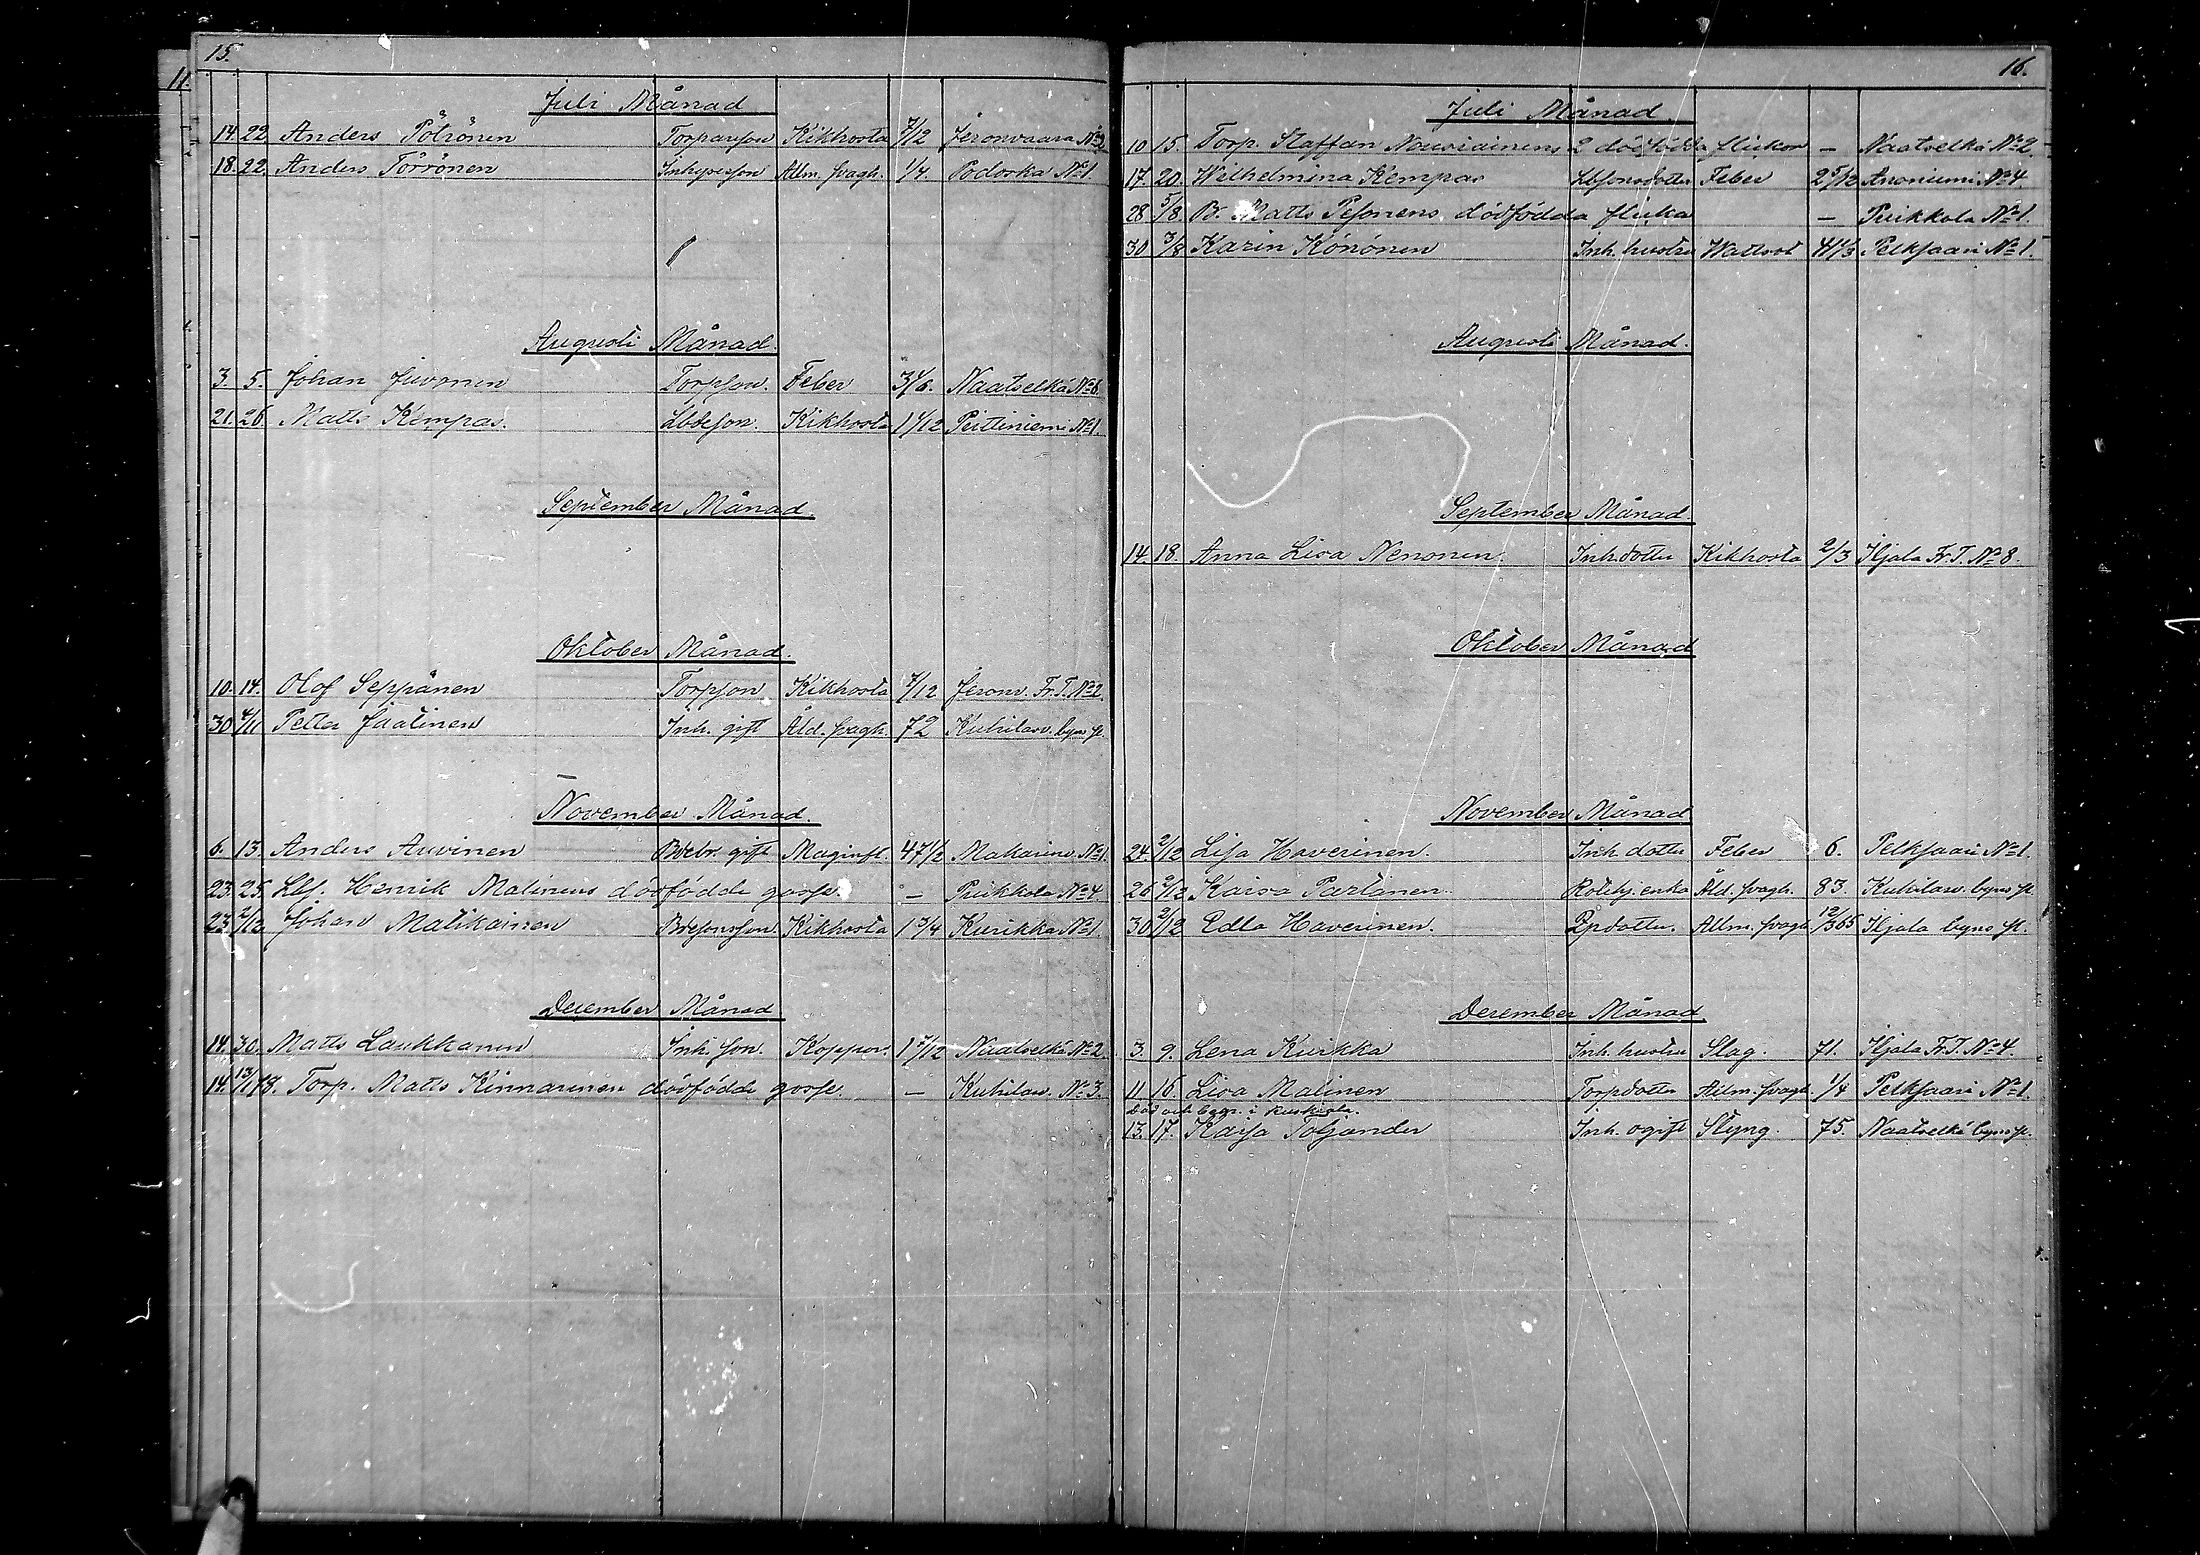 15.
11.
Juli Månad
14. 22. Anders Pötrönen Torparson Kikhosta 7/12 Jeronvaara No 2
18. 22. Anders Törrönen Inhyseson Allm. svagh. 1/4. Podorka No 1
Augusti Månad.
3. 5. Johan Juvonen Torpson. Feber 3 1/6. Naatselkä No 6.
21. 26. Matts Kempas. Lbdeson. Kikhosta 1 1/12 Peittiniemi No 1.
September Månad.
Oktober Månad.
10. 14. Olof Seppänen Torpson Kikhosta 7/12 Jeronv. Fr. T. No 2
30 4/11 Petter Jäälinen Inh. gift Åld. svagh. 72 Kuhilasv. byns fl.
November Månad.
6. 13. Anders Auvinen Bdebr. gift Maginfl. 47 1/2 Makarins No 1.
23. 25. Lbf. Henrik Malinens dödfödde gosse. — Puikkola No 4.
23. 2/12 Johan Matikainen Bdesonson Kikhosta 1 3/4 Kurikka No 1.
December Månad
14. 30. Matts Laukkanen Inh. son. Koppor. 1 7/12 Naatselkä No 2.
14. 13/11 18. Torp. Matts Kinnarinen dödfödde gosse. — Kuhilasv. No 3.
16.
Juli Månad.
10 15. Torp. Staffan Nousiainens 2 dödfödda flickor — Naatselkä No 2.
17. 20. Wilhelmina Kempas Lbfsonsdotter Feber 2 5/12 Anoniemi No 4.
28 5/8 B. Matts Pesonens dödfödda flicka — Puikkola No 1.
30 3/8 Karin Könönen Inh. hustru Wattsot 41 1/3 Pelkjaari No 1.
Augusti Månad.
September Månad.
14. 18. Anna Lisa Nenonen Inh. dotter Kikhosta 2/3 Iljala Fr. T. No 8.
Oktober Månad
November Månad
24. 2/12 Lisa Haverinen. Inh dotter Feber 6. Pelkjaari No 1.
26 2/12 Kaisa Partanen. Rotehj. enka Åld. svagh. 83. Kuhilasv. byns fl.
30 2/12 Edla Haverinen. Rpdotter. Allm. svagh 12/365 Iljala byns fl.
December Månad
3. 9. Lena Kurikka Inh. hustru Slag. 71. Iljala Fr. T. No 4.
11 16. Lisa Malinen Torpdotter Allm. svagh 1/4 Pelkjaari No 1.
Död och begr. i Ruskiala.
13. 17. Kaisa Toljander Inh. ogift Styng. 75. Naatselkä byns fl.